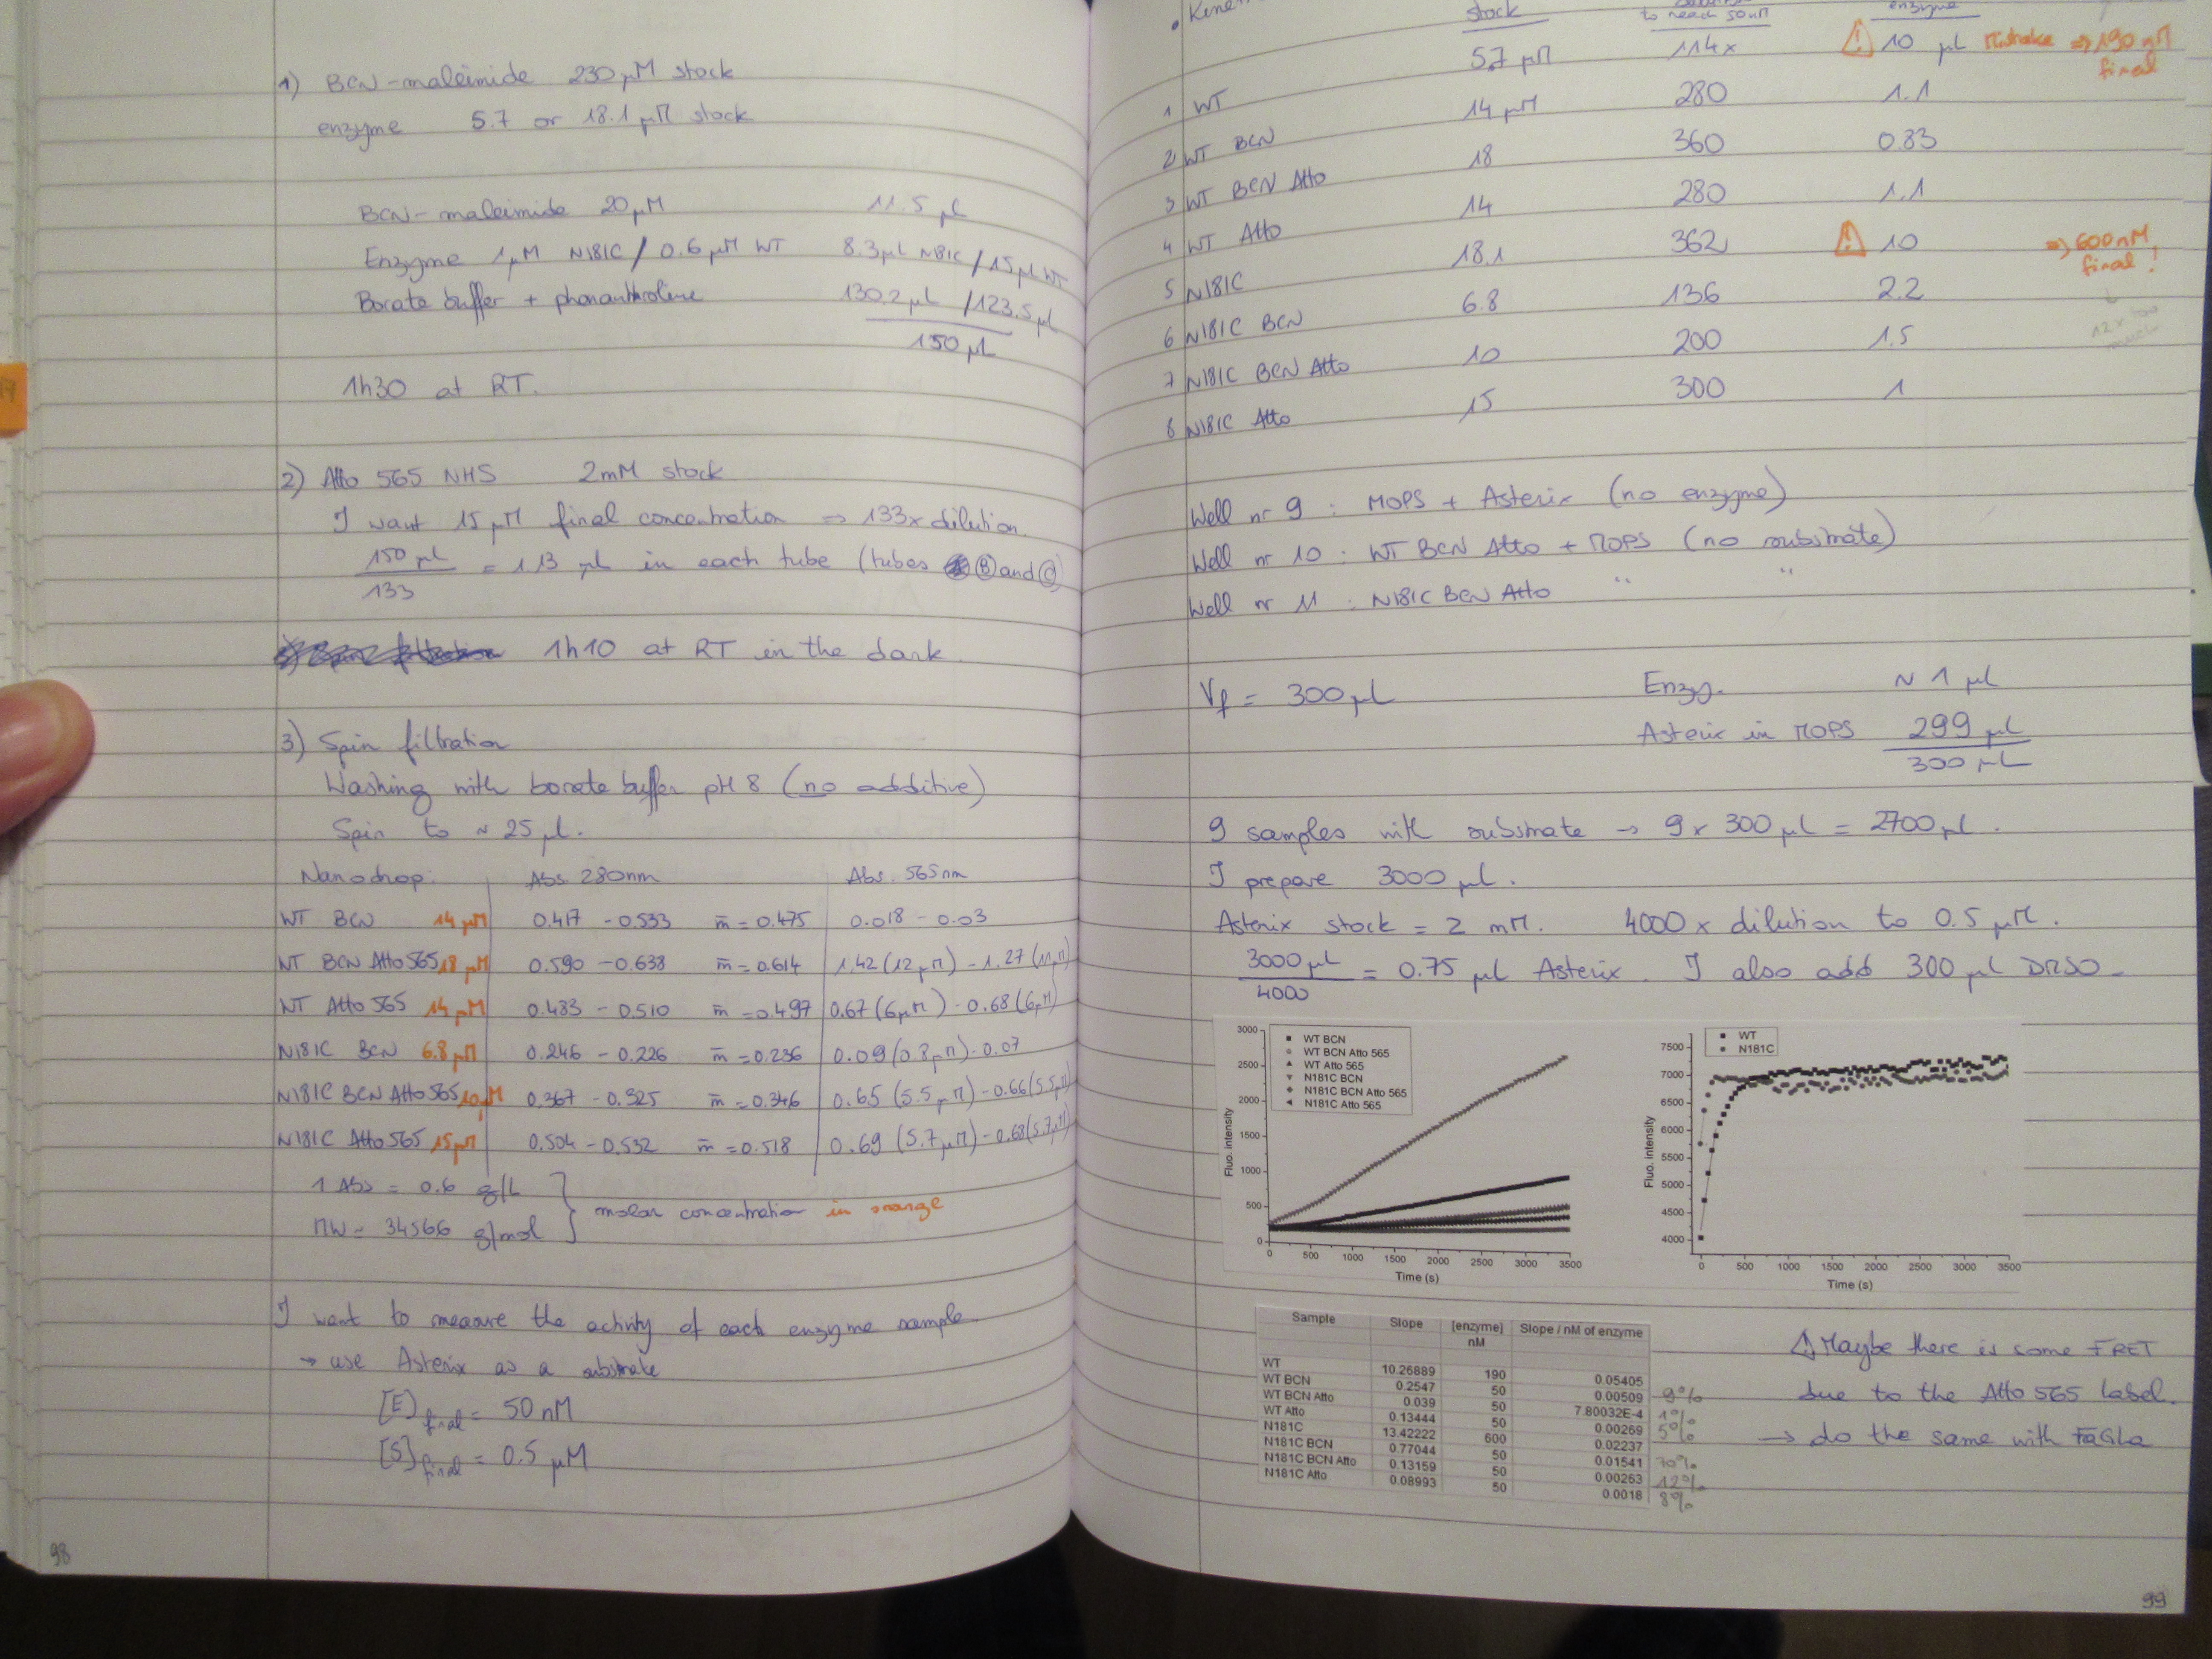 1) BCN-maleimide 230 µM stock
enzyme 5.7 or 18.1 µM stock
BCN-maleimide 20 µM 11.5 µl
Enzyme 1 µM N181C / 0.6 µM WT 8.3 µl N181C / 15 µl WT
Borate buffer + phenanthroline 130.2 µl / 123.5 µl
150 µl
1h30 at RT.
2) Atto 565 NHS 2mM stock
I want 15 µM final concentration ⇒ 133x dilution.
150 µl / 133 = 1.13 µl in each tube (tubes B and C)
1h10 at RT in the dark.
3) Spin filtration
Washing with borate buffer pH 8 (no additive)
Spin to ~ 25 µl.
Nanodrop: Abs 280nm Abs. 565nm
WT BCN 14 µM 0.417 - 0.533 m̄ = 0.475 0.018 - 0.03
WT BCN Atto 565 18 µM 0.590 - 0.638 m̄ = 0.614 1.42 (12 µM) - 1.27 (11 µM)
WT Atto 565 14 µM 0.483 - 0.510 m̄ = 0.497 0.67 (6 µM) - 0.68 (6 µM)
N181C BCN 6.8 µM 0.246 - 0.226 m̄ = 0.236 0.09 (0.8 µM) - 0.07
N181C BCN Atto 565 10 µM 0.367 - 0.325 m̄ = 0.346 0.65 (5.5 µM) - 0.66 (5.5 µM)
N181C Atto 565 15 µM 0.504 - 0.532 m̄ = 0.518 0.69 (5.7 µM) - 0.68 (5.7 µM)
1 Abs = 0.6 g/L
MW = 34566 g/mol
molar concentration in orange
I want to measure the activity of each enzyme sample.
→ use Asterix as a substrate
[E] final = 50 nM
[S] final = 0.5 µM
98
stock to reach 50 nM enzyme
1 WT 5.7 µM 114x ! 10 µl Mistake ⇒ 190 nM final
2 WT BCN 14 µM 280 1.1
3 WT BCN Atto 18 360 0.83
4 WT Atto 14 280 1.1
5 N181C 18.1 362 ! 10 ⇒ 600 nM final !
12x too much
6 N181C BCN 6.8 136 2.2
7 N181C BCN Atto 10 200 1.5
8 N181C Atto 15 300 1
Well nr 9 : MOPS + Asterix (no enzyme)
Well nr 10 : WT BCN Atto + MOPS (no substrate)
Well nr 11 : N181C BCN Atto " "
Vf = 300 µl Enzy. ~ 1 µl
Asterix in MOPS 299 µl
300 µl
9 samples with substrate → 9 x 300 µl = 2700 µl.
I prepare 3000 µl.
Asterix stock = 2 mM. 4000 x dilution to 0.5 µM.
3000 µl / 4000 = 0.75 µl Asterix. I also add 300 µl DMSO.
WT BCN
WT BCN Atto 565
WT Atto 565
N181C BCN
N181C BCN Atto 565
N181C Atto 565
Fluo. intensity
3000
2500
2000
1500
1000
500
0
0 500 1000 1500 2000 2500 3000 3500
Time (s)
WT
N181C
Fluo. intensity
7500
7000
6500
6000
5500
5000
4500
4000
0 500 1000 1500 2000 2500 3000 3500
Time (s)
Sample Slope [enzyme] nM Slope / nM of enzyme
WT 10.26889 190 0.05405
WT BCN 0.2547 50 0.00509 9%
WT BCN Atto 0.039 50 7.80032E-4 1%
WT Atto 0.13444 50 0.00269 5%
N181C 13.42222 600 0.02237
N181C BCN 0.77044 50 0.01541 70%
N181C BCN Atto 0.13159 50 0.00263 12%
N181C Atto 0.08993 50 0.0018 8%
! Maybe there is some FRET
due to the Atto 565 label.
→ do the same with FaGLa
99